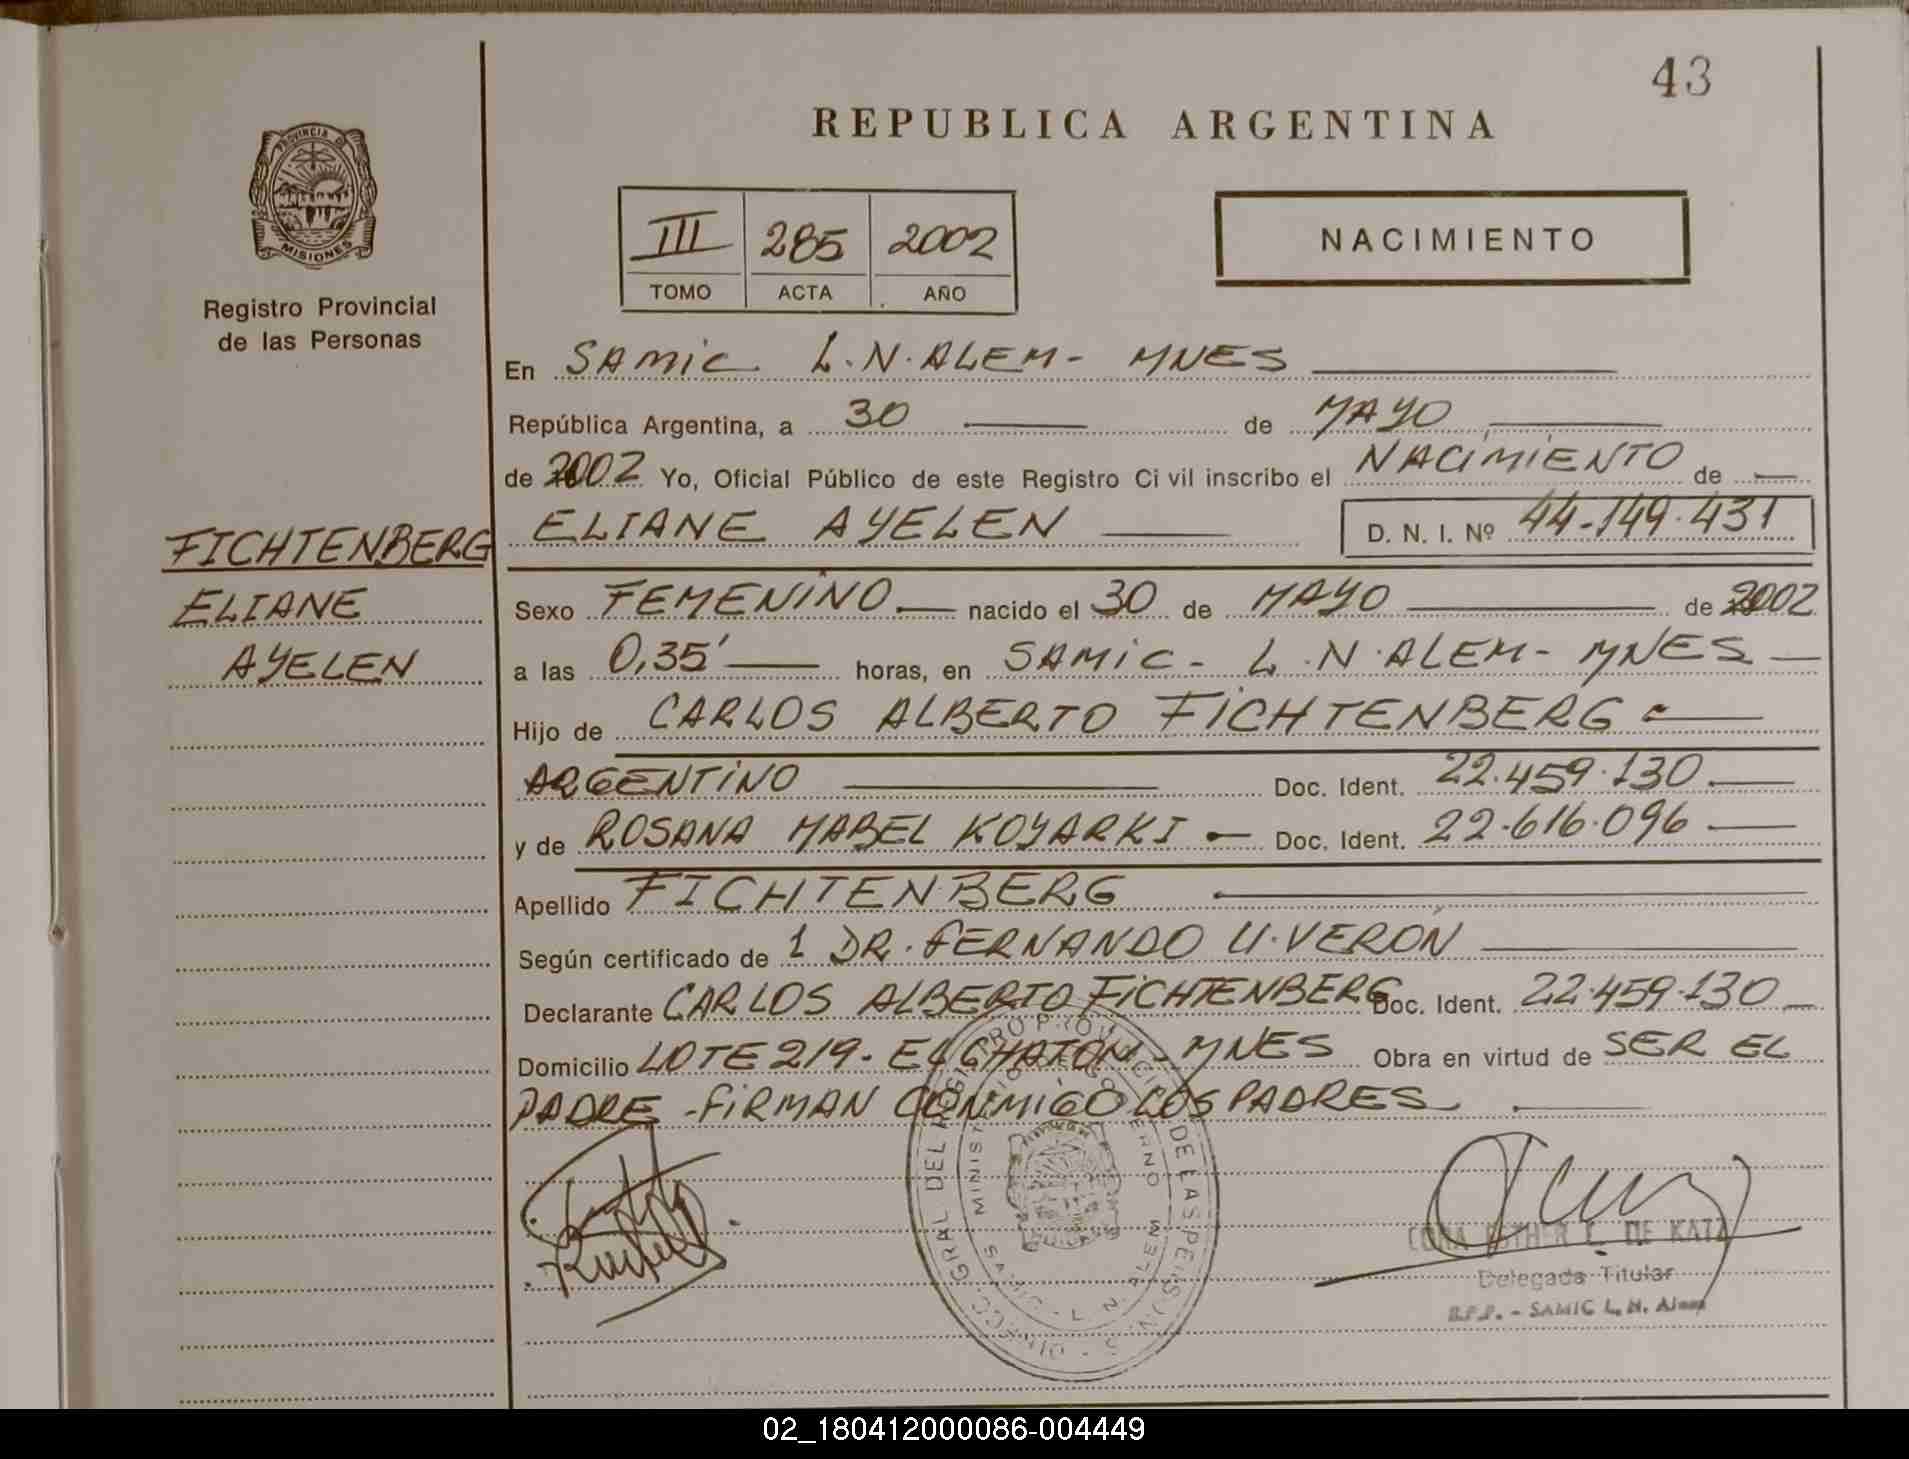 43
REPUBLICA ARGENTINA
PROVINCIA DE
MISIONES
Registro Provincial
de las Personas
III 285 2002
TOMO ACTA AÑO
NACIMIENTO
En SAMIC L.N.ALEM- MNES
República Argentina, a 30 de MAYO
de 2002 Yo, Oficial Público de este Registro Ci vil inscribo el NACIMIENTO de
ELIANE AYELEN D. N. I. Nº 44-149.431
FICHTENBERG
ELIANE
AYELEN
Sexo FEMENINO nacido el 30 de MAYO de 2002
a las 0,35' horas, en SAMIC- L.N.ALEM- MNES
Hijo de CARLOS ALBERTO FICHTENBERG
ARGENTINO Doc. Ident. 22.459.130
y de ROSANA MABEL KOYARKI Doc. Ident. 22.616.096
Apellido FICHTENBERG
Según certificado de 1 DR. FERNANDO U.VERÓN
Declarante CARLOS ALBERTO FICHTENBERG Doc. Ident. 22.459.130
Domicilio LOTE 219- EL CHATÓN- MNES Obra en virtud de SER EL
PADRE -FIRMAN CONMIGO LOS PADRES
ESTHER L. DE KATZ
Delegada Titular
R.P.P. - SAMIC L. N. Alem
02_180412000086-004449